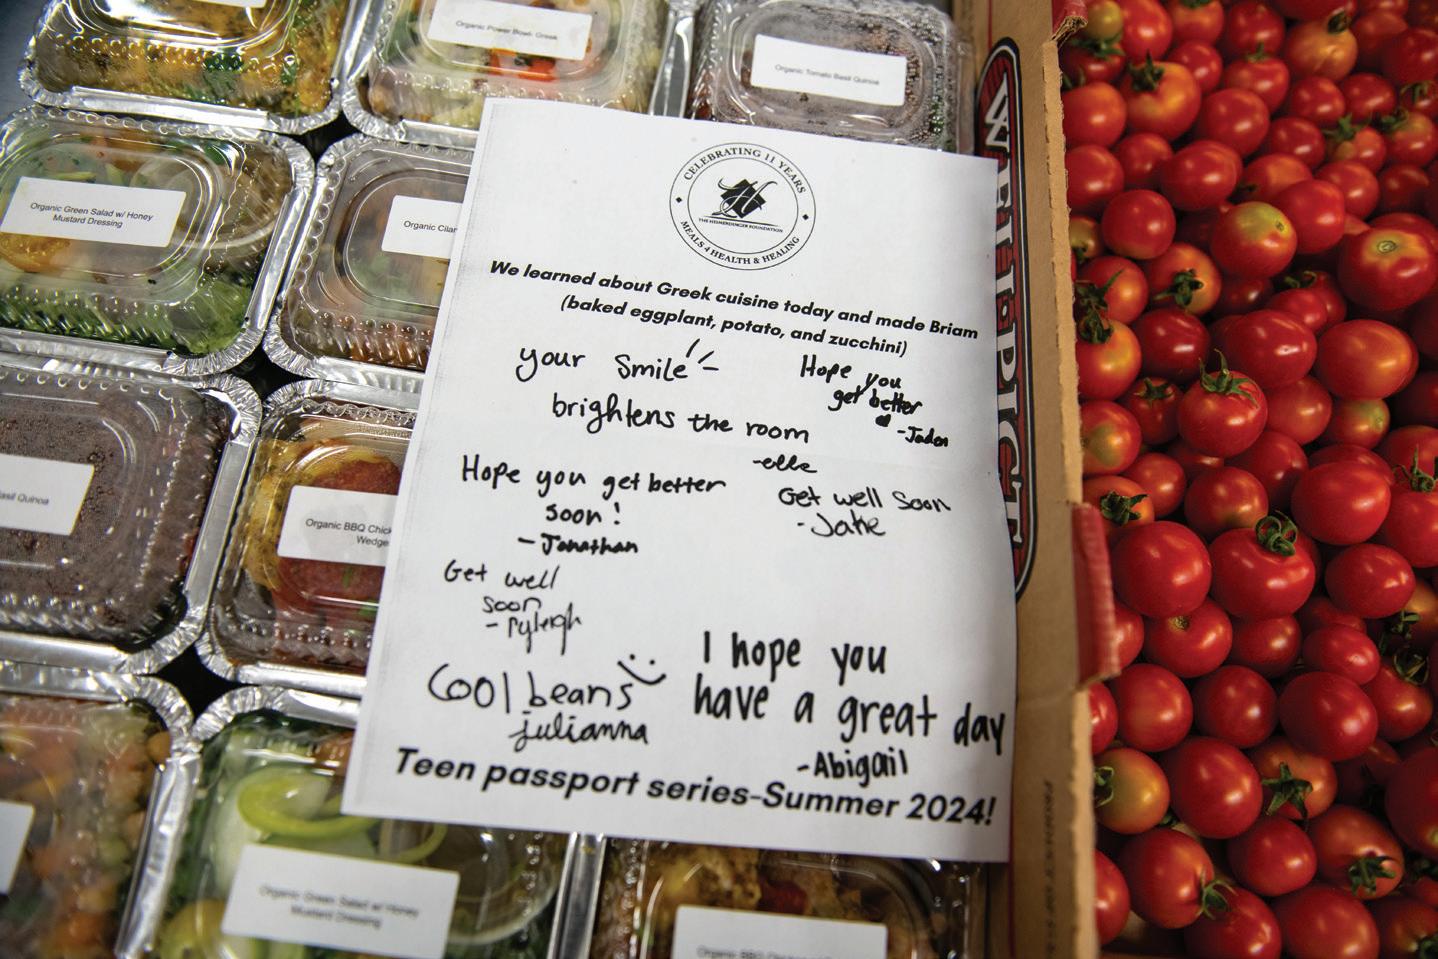 Organic Power Bowl- Greek
Organic Tomato Basil Quinoa
Organic Green Salad w/ Honey
Mustard Dressing
Organic
CELEBRATING 11 YEARS
THE HEIMERDINGER FOUNDATION
MEALS 4 HEALTH & HEALING
We learned about Greek cuisine today and made Briam
(baked eggplant, potato, and zucchini)
your smile
brightens the room
-elle
Hope you
get better
-Jadon
Hope you get better
soon!
-Jonathan
Get well soon
-Jake
Get well
soon
-Ryleigh
Cool beans
julianna
I hope you
have a great day
-Abigail
Teen passport series-Summer 2024!
Quinoa
Organic BBQ
Organic Green Salad w/ Honey
Mustard Dressing
Organic BBQ